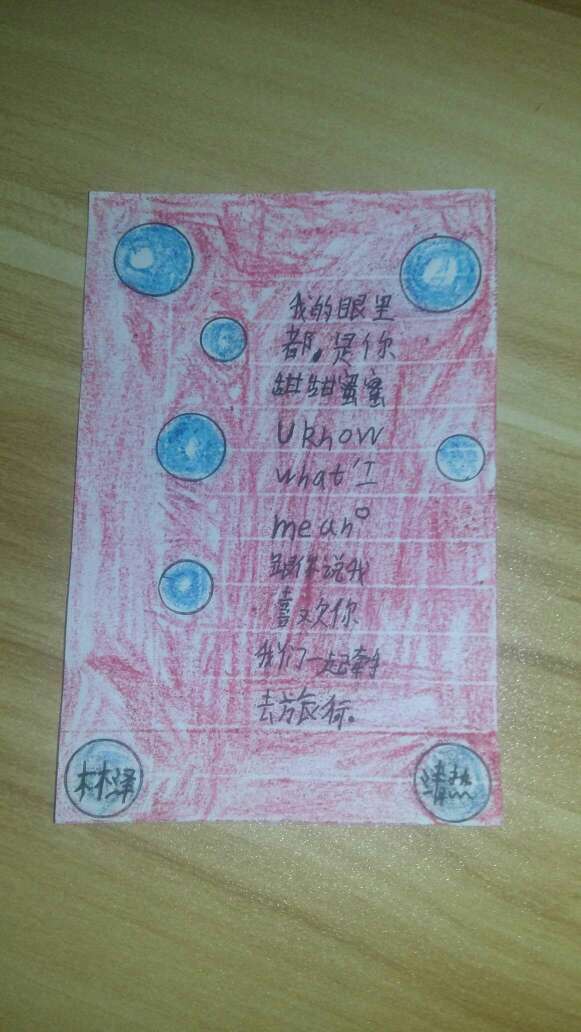 我的眼里
都是你
甜甜蜜蜜
U know
what I
mean。
跟你说我
喜欢你
我们一起牵手
去旅行。
林泽
清然